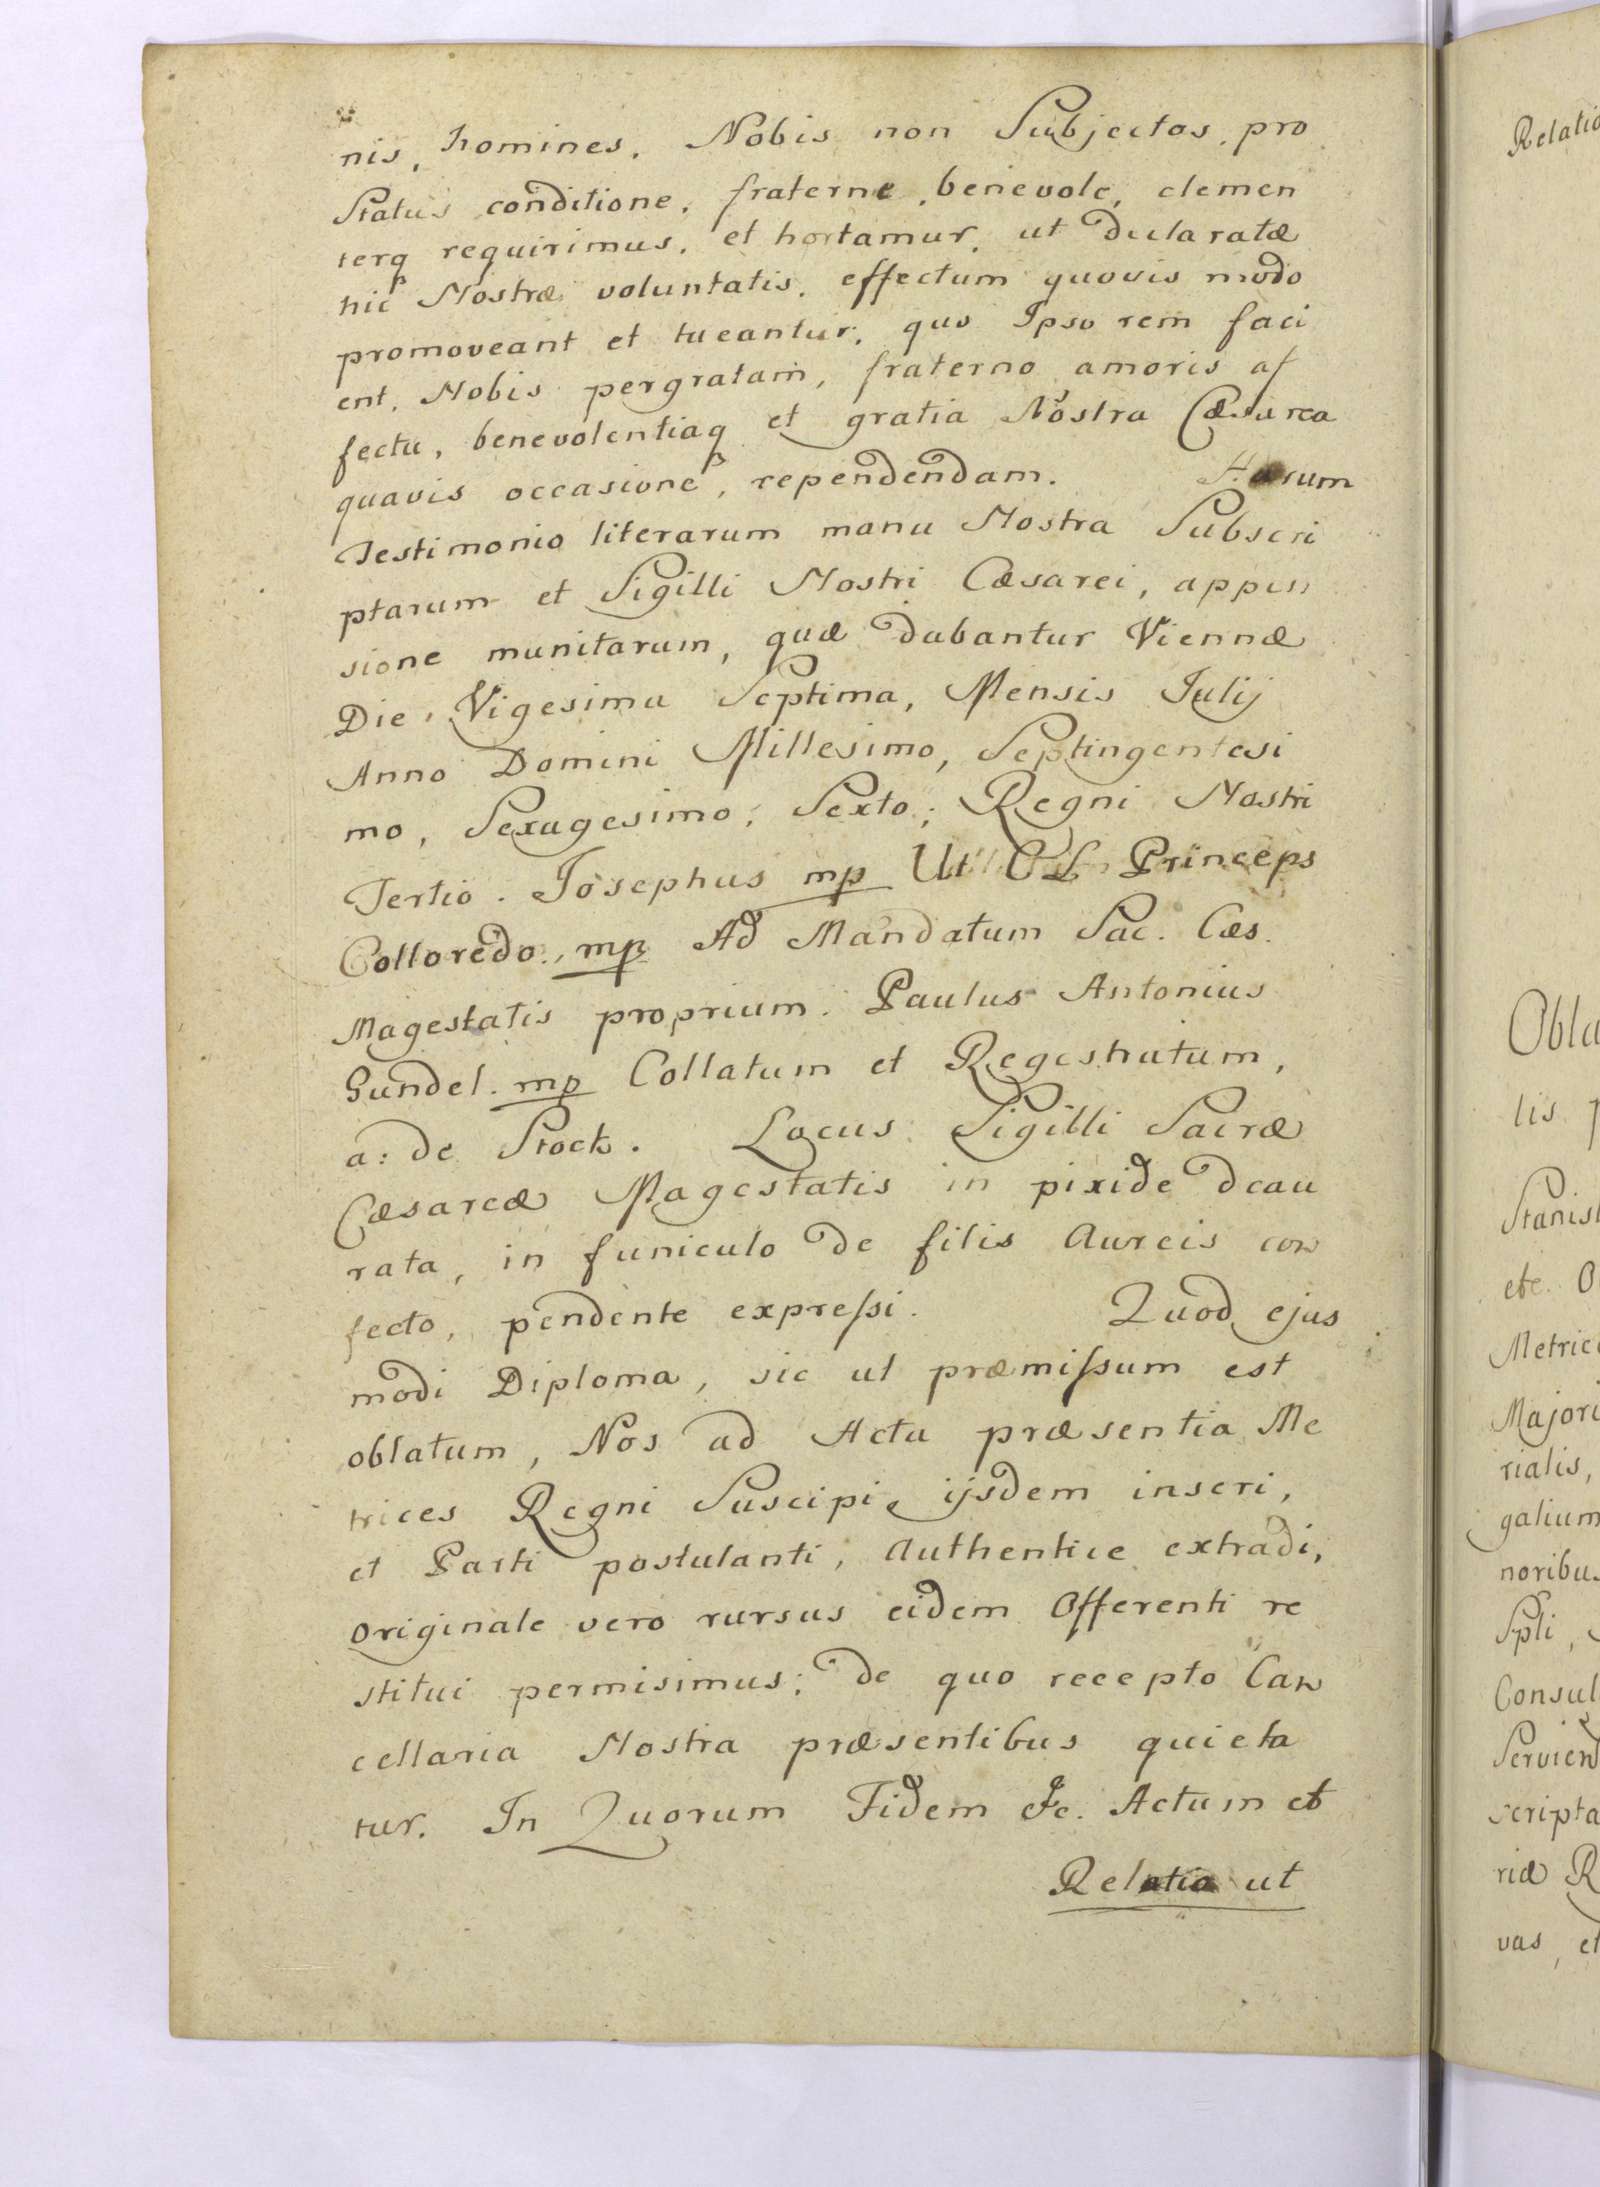 nis, homines, Nobis non Subjectos, pro
Status conditione, fraterne, benevole, clemen
terq requirimus, et hortamur, ut declaratæ
hic Nostræ voluntatis, effectum quovis modo
promoveant et tueantur, quo Ipso rem faci
ent, Nobis pergratam, fraterno amoris af
fectu, benevolentiaq et gratia Nostra Cæsarea
quavis occasione, rependendam. Harum
Testimonio literarum manu Nostra Subscri
ptarum et Sigilli Nostri Cæsarei, appen
sione munitarum, quæ dabantur Viennæ
Die Vigesima Septima, Mensis Julij
Anno Domini Millesimo, Septingentesi
mo, Sexagesimo, Sexto; Regni Nostri
Tertio. Josephus mp Ut Princeps
Colloredo. mp Ad Mandatum Sac. Cæs.
Magestatis proprium. Paulus Antonius
Gundel. mp Collatum et Regestratum,
a: de Stock. Locus Sigilli Sacræ
Cæsareæ Magestatis in pixide deau
rata, in funiculo de filis Aureis con
fecto, pendente expreſsi. Quod ejus
modi Diploma, sic ut præmiſsum est
oblatum, Nos ad Acta præsentia Me
trices Regni Suscipi, ijsdem inseri,
et Parti postulanti, Authentice extradi,
Originale vero rursus eidem Offerenti re
stitui permisimus; de quo recepto Can
cellaria Nostra præsentibus quieta
tur. In Quorum Fidem &c. Actum et
Relatio ut
Relatio
Obla
lis
Stanisl
etc. O
Metric
Majori
rialis,
galium
noribus
Spli,
Consul
Servien
scripta
riæ R
vas, et